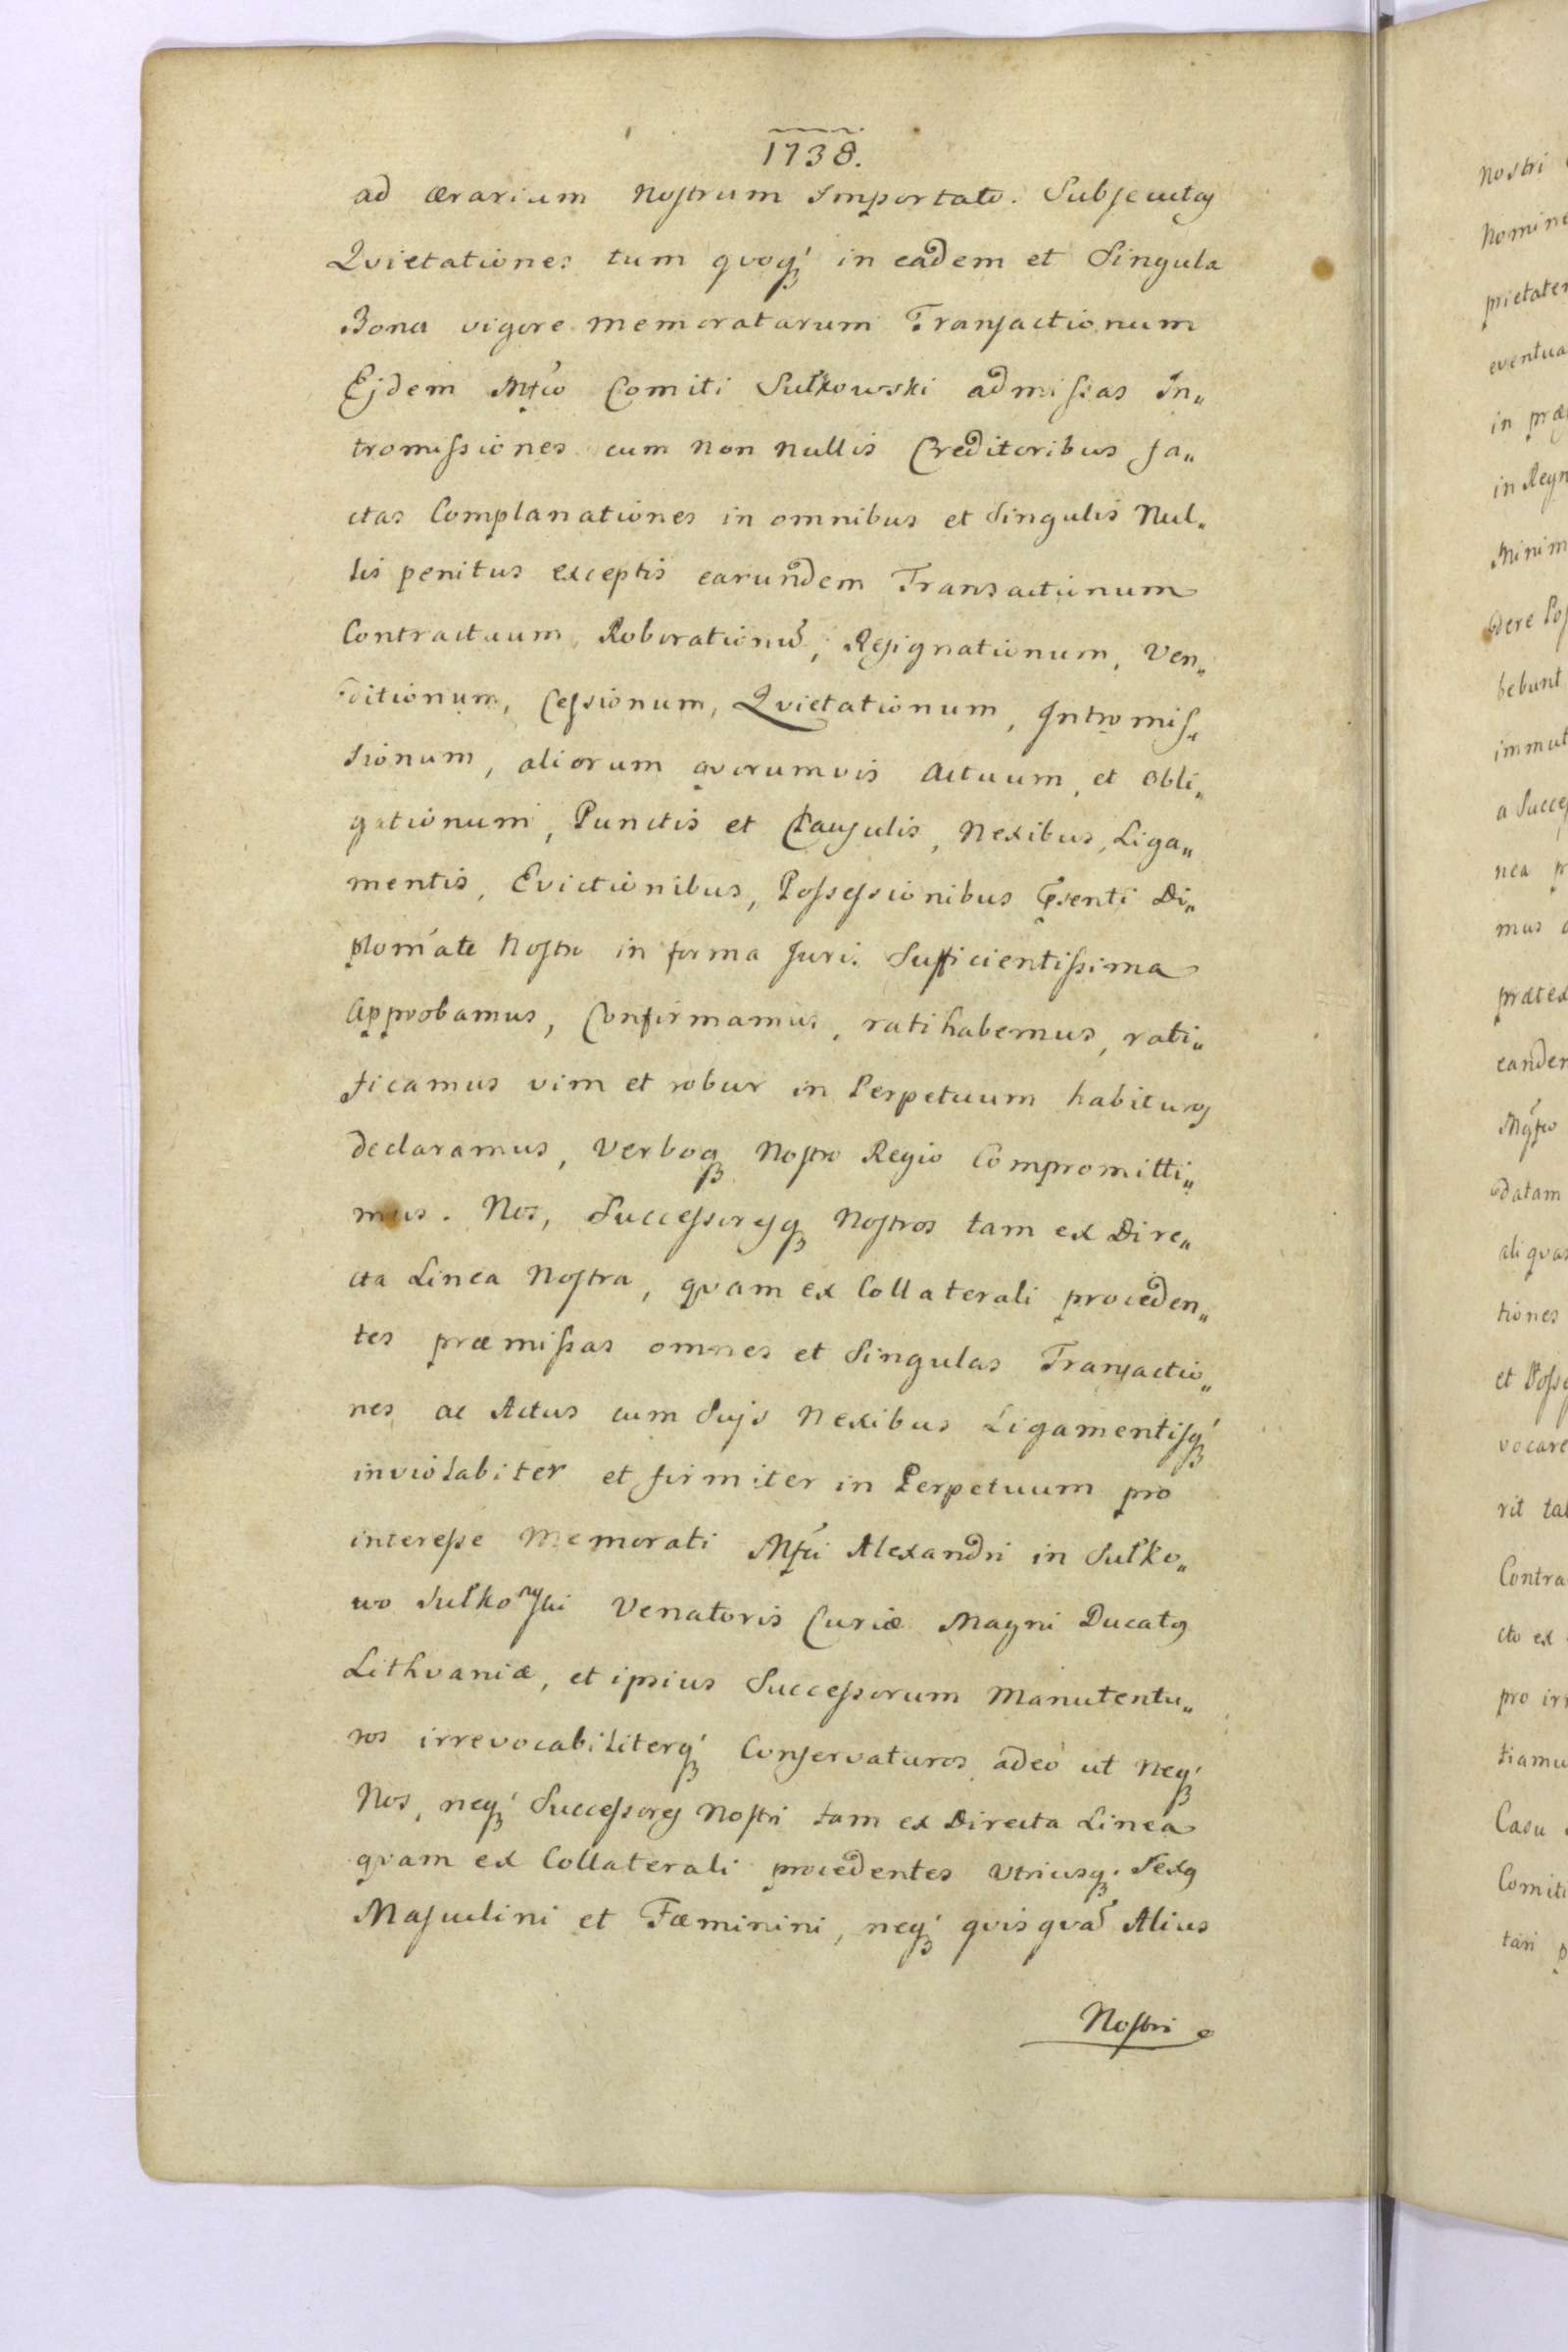 1738.
ad ærarium Nostrum Importato. Subsecutas
Qvietationes tum qvoq́ in eadem et Singula
Bona vigore memoratarum Transactionum
Ejdem Mfco Comiti Sułkowski admissas In„
tromissiones cum non nullis Creditoribus fa„
ctas Complanationes in omnibus et Singulis Nul„
lis penitus exceptis earundem Transactionum
Contractuum, Roborationũ, Resignationum, Ven„
ditionum, Cessionum, Qvietationum, Intromis„
sionum, aliorum qvorumvis Actuum, et Obli„
gationum, Punctis et Clausulis, Nexibus, Liga„
mentis, Evictionibus, Possessionibus Psenti Di„
plomate Nostro in forma Juris Sufficientissima
Approbamus, Confirmamus, ratihabemus, rati„
ficamus vim et robur in Perpetuum habituros
declaramus, Verboq Nostro Regio Compromitti„
mus. Nos, Successoresq Nostros tam ex Dire„
cta Linea Nostra, qvam ex Collaterali proceden„
tes præmissas omnes et Singulas Transactio„
nes ac Actus cum Sujs Nexibus Ligamentisq́
inviolabiter et firmiter in Perpetuum pro
interesse Memorati Mfci Alexandri in Sułko„
wo Sułkowski Venatoris Curiæ Magni Ducatus
Lithvaniæ, et ipsius Successorum Manutentu„
ros irrevocabiliterq́ Conservaturos, adeò ut Neq́
Nos, neq́ Successores Nostri tam ex Directa Linea
qvam ex Collaterali procedentes Utriusq. Sexus
Masculini et Fæminini, neq́ qvisqvã Alius
Nostri
nostri
Nomine
prietatem
eventua
in præ
in Regn
Minim
dere Pos
bebunt
immut
a Succes
nea p
mus
prætex
eandem
Mgfco
datam
aliqvas
tiones
et Posse
vocare
rit tal
Contra
cto ex
pro irr
tiamu
Casu
Comiti
tari p